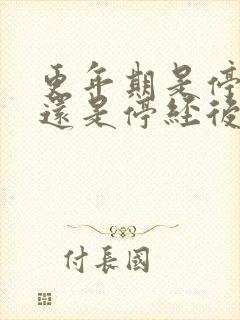 更年期是停
還是停經後
付長國